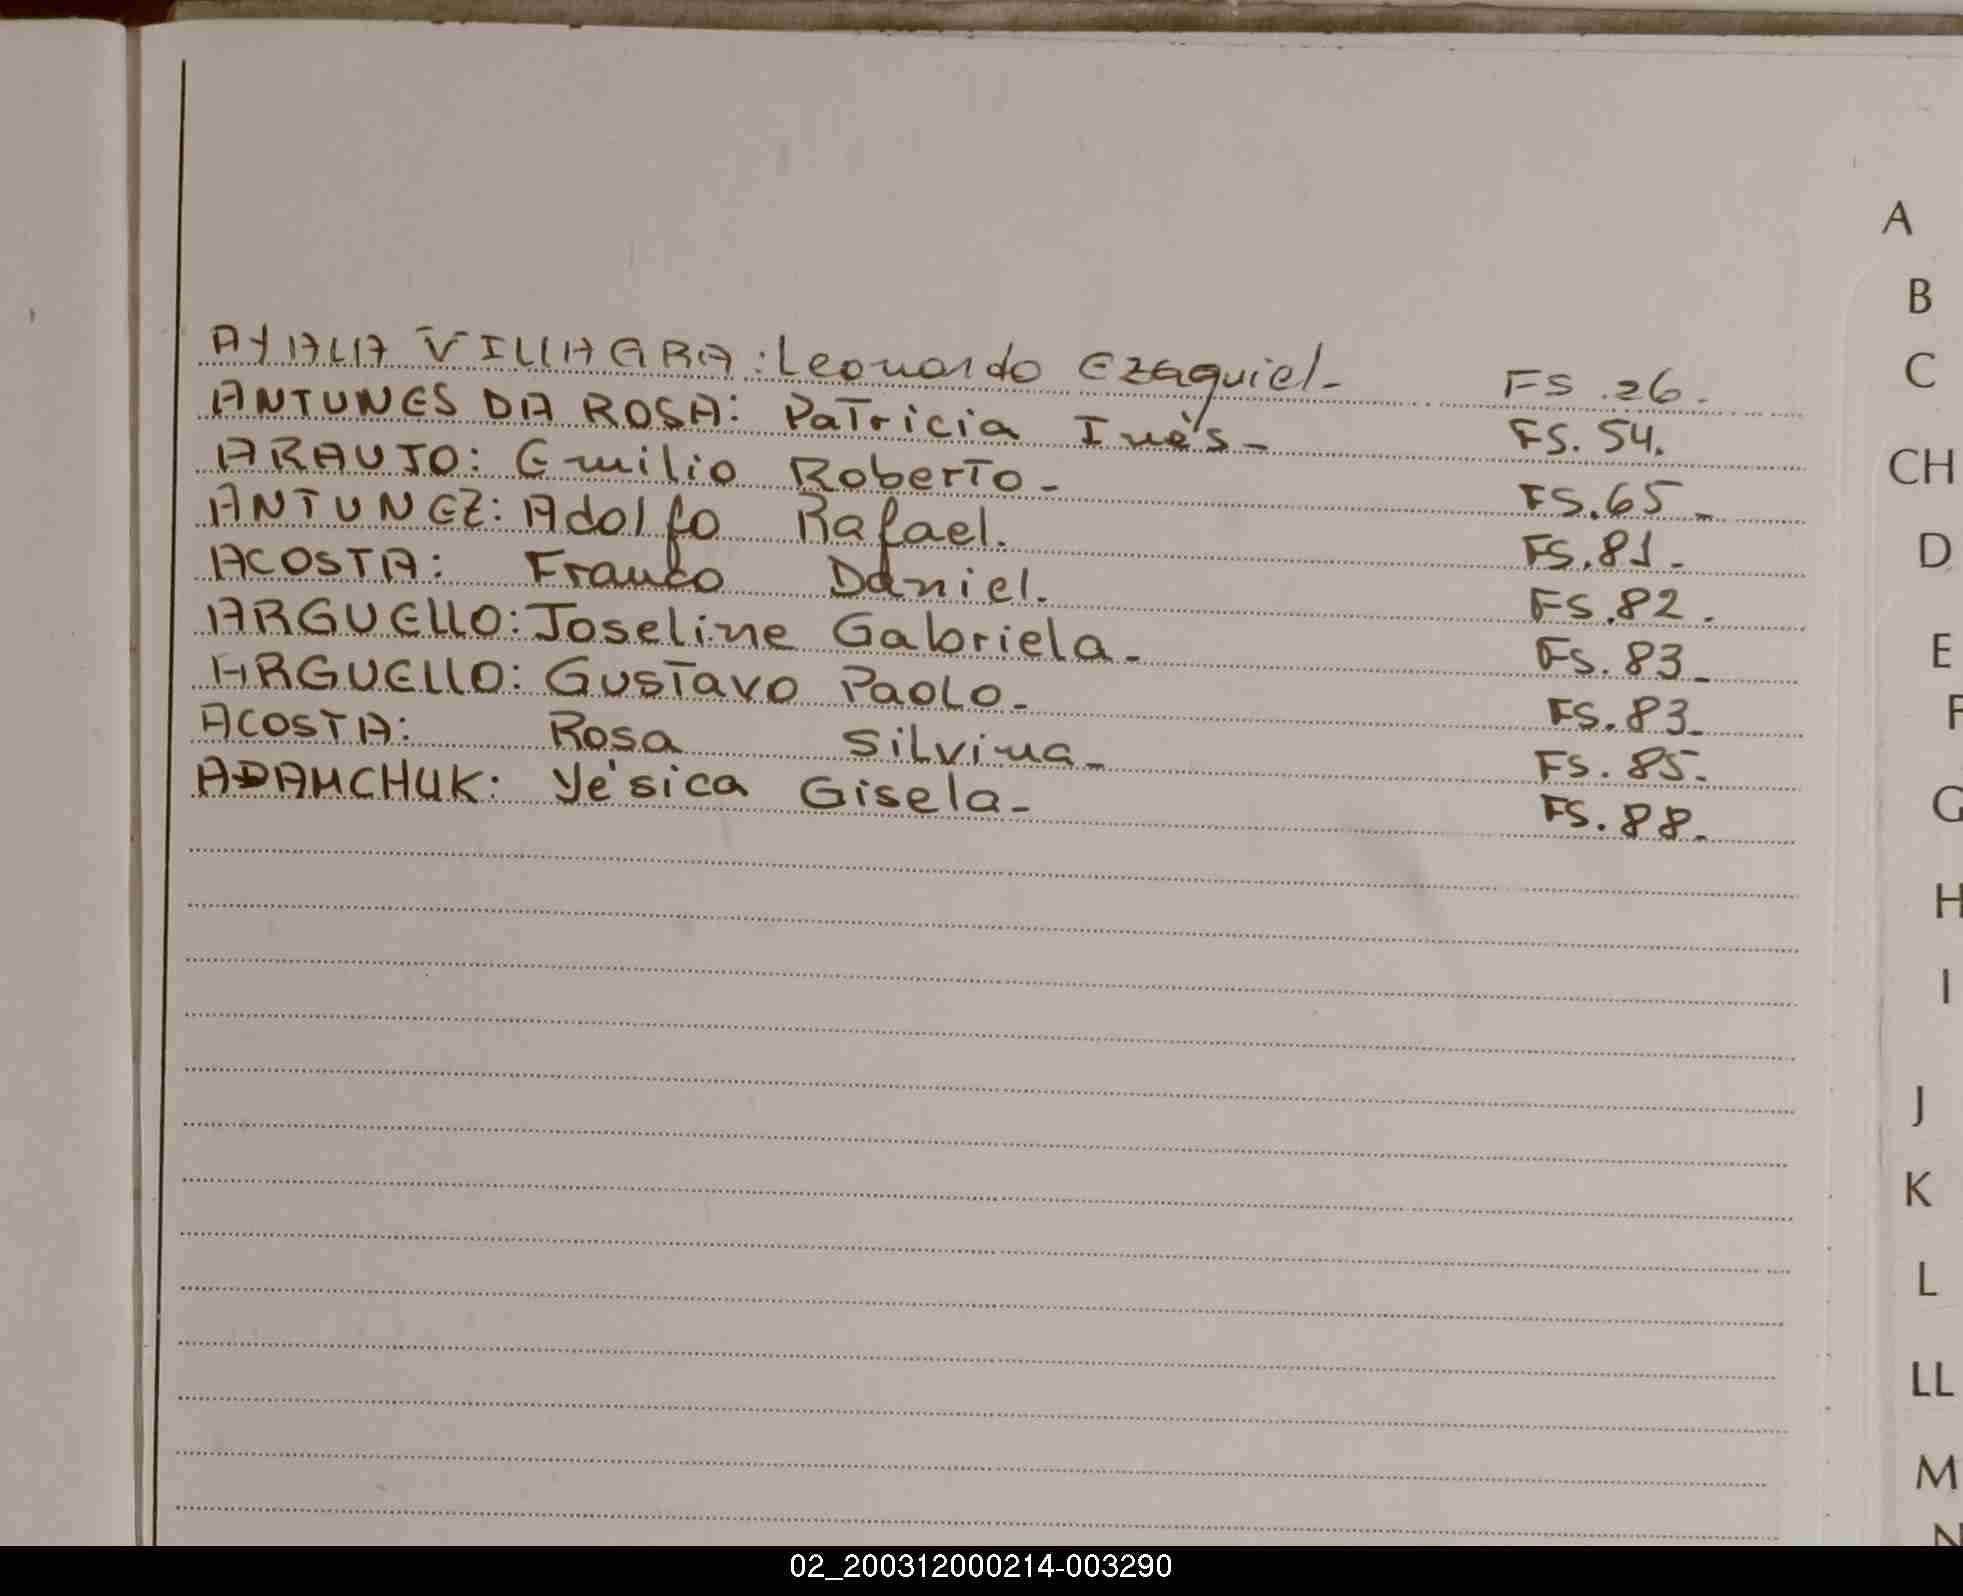 AYALA VILLAGRA: Leonardo Ezequiel- FS.26.
ANTUNES DA ROSA: Patricia Inés- FS.54.
ARAUJO: Emilio Roberto- FS.65-
ANTUNEZ: Adolfo Rafael. FS.81-
ACOSTA: Franco Daniel. FS.82.
ARGUELLO: Joseline Gabriela- FS.83-
ARGUELLO: Gustavo Paolo- FS.83-
ACOSTA: Rosa Silvina- FS.85.
ADAMCHUK: Yésica Gisela- FS.88-
A
B
C
CH
D
E
F
G
H
I
J
K
L
LL
M
N
02_200312000214-003290